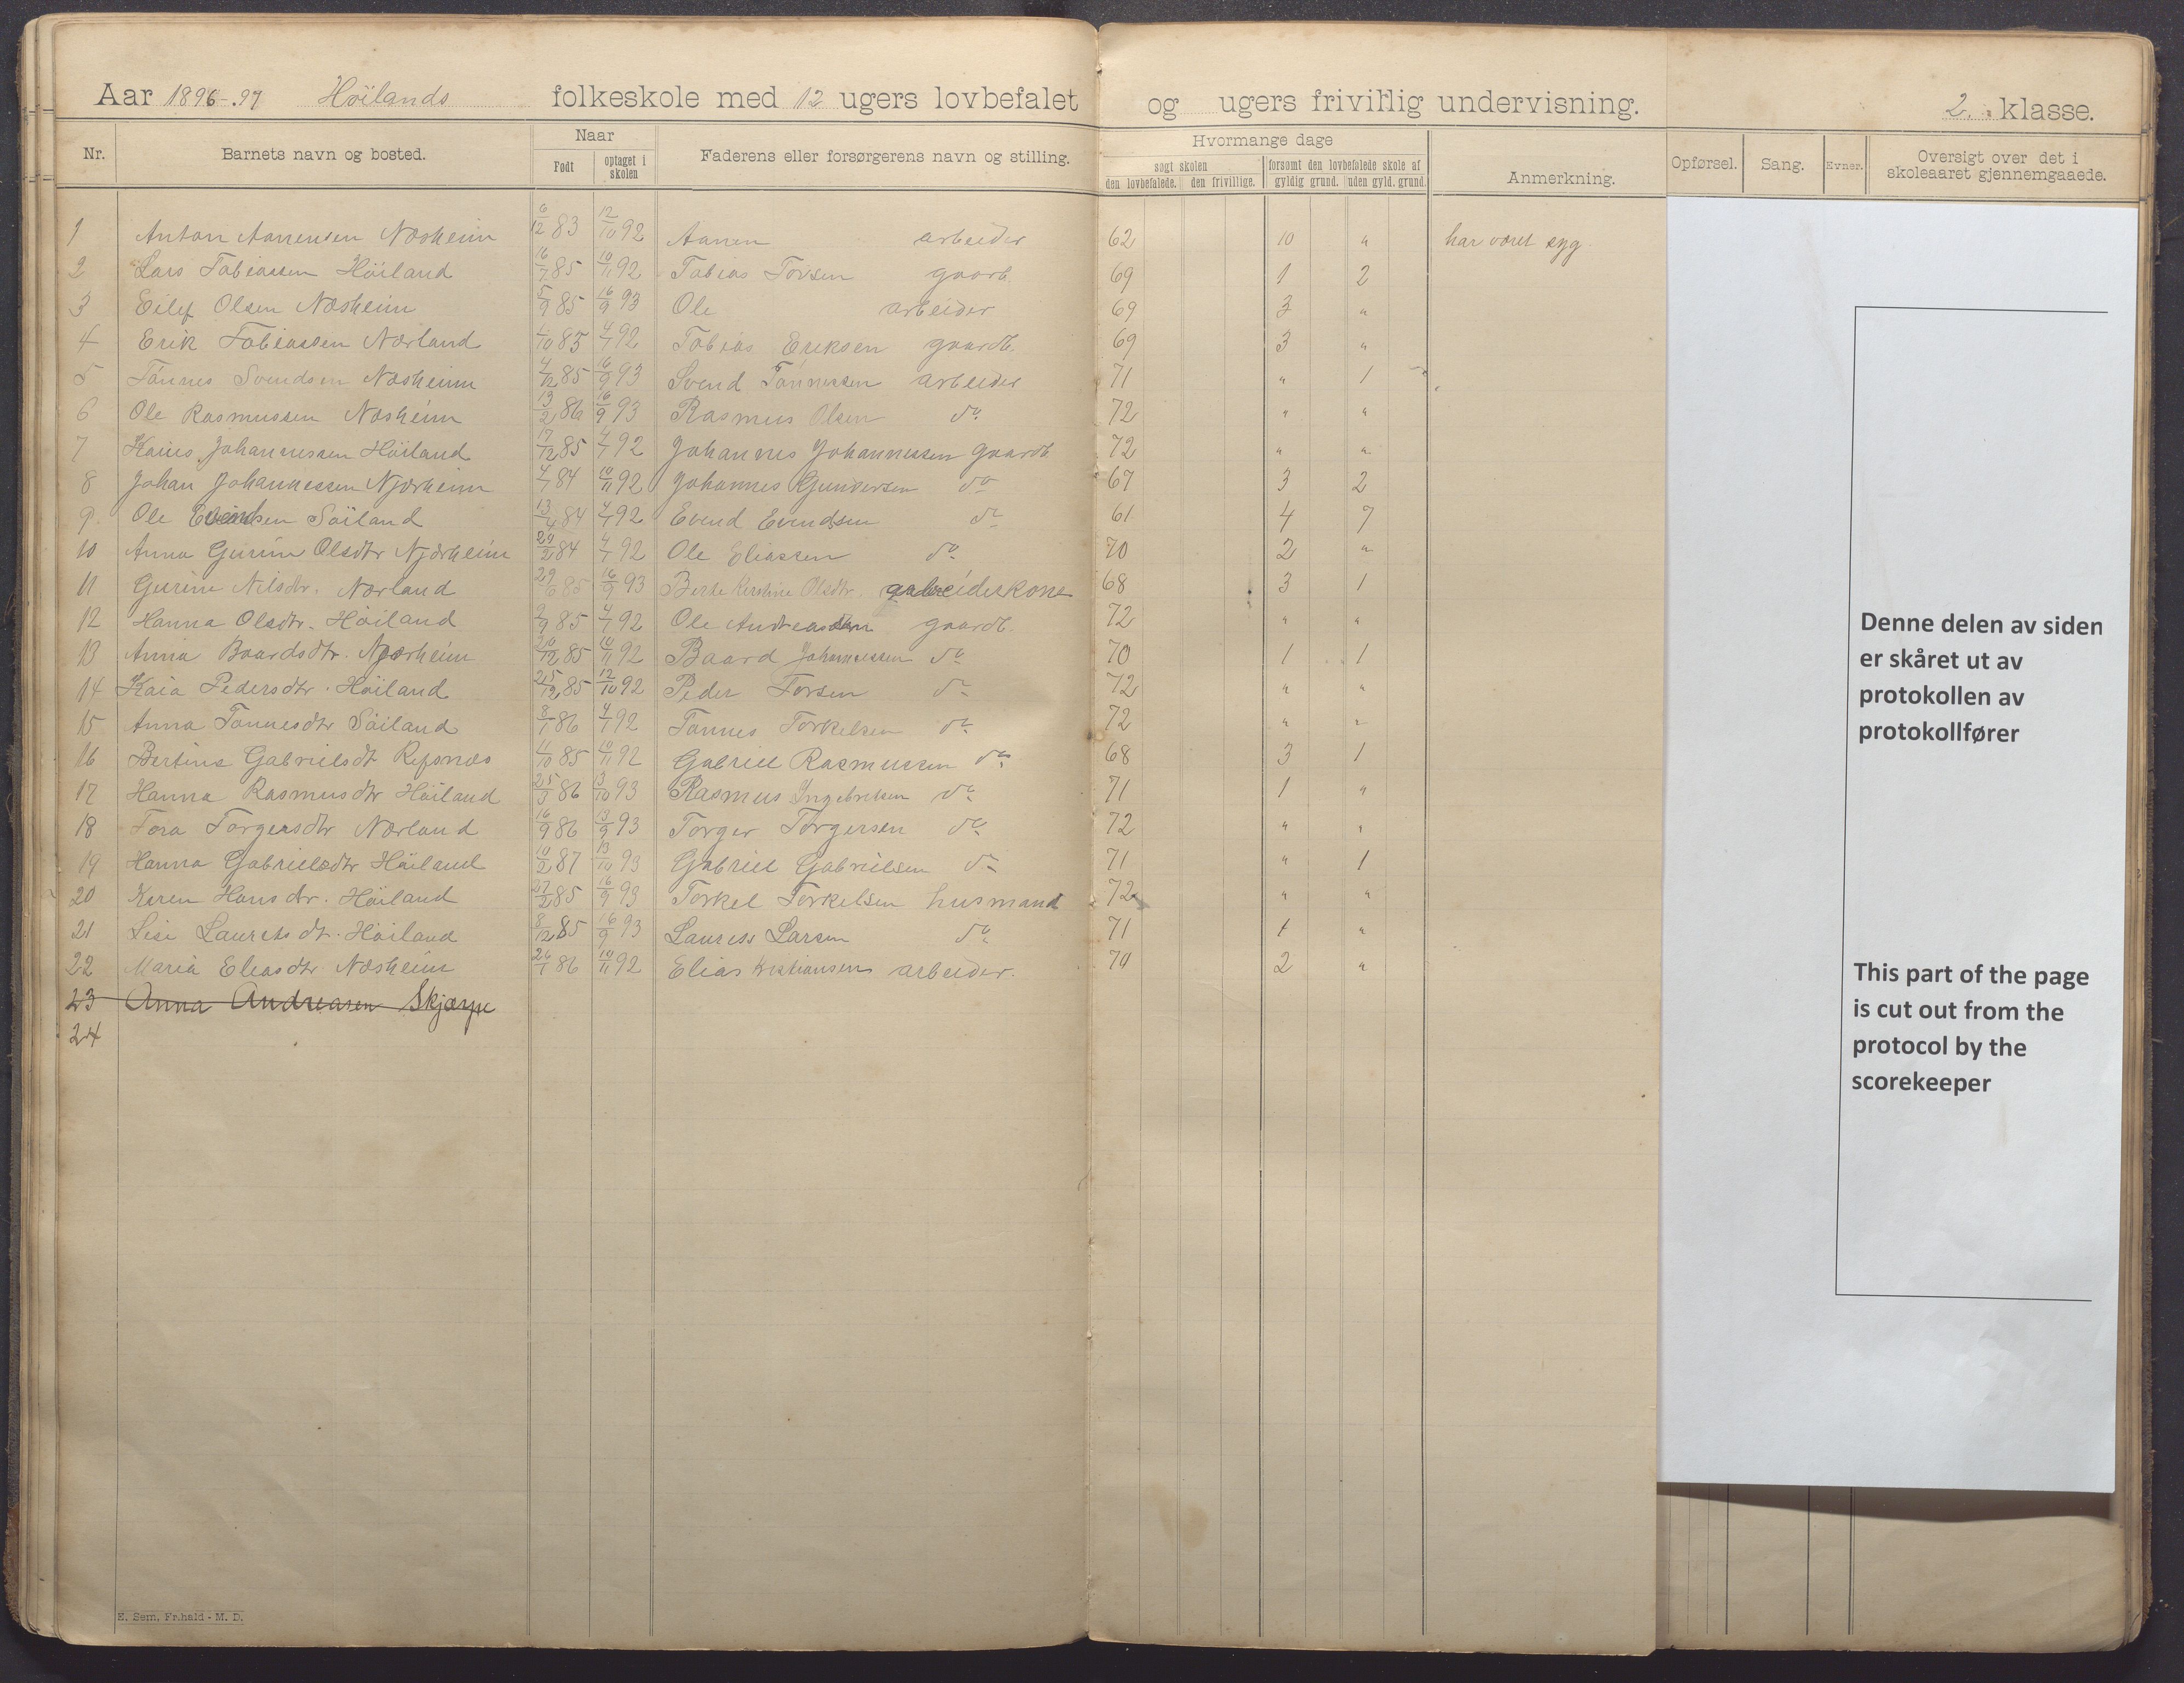 Aar 1896-97 Höilands folkeskole med 12 ugers lovbefalet og ugers frivillig undervisning. 2. klasse.
Nr. Barnets navn og bosted. Naar Født optaget i skolen Faderens eller forsørgerens navn og stilling. Hvormange dage søgt skolen den lovbefalede. den frivillige. forsømt den lovbefalede skole af gyldig grund. uden gyld. grund. Anmerkning. Opførsel. Sang. Evner. Oversigt over det i skoleaaret gjennemgaaede.
1 Anton Aanensen Næsheim 6/12 83 12/10 92 Aanen arbeider 62 10 " har været syg
2 Lars Tobiassen Höiland 16/7 85 10/11 92 Tobias Torsen gaardb. 69 1 2
3 Eilef Olsen Næsheim 5/9 85 16/9 93 Ole arbeider 69 3 "
4 Erik Tobiassen Nærland 85 4/1 92 Tobias Eriksen gaardb. 69 3 "
5 Tönnes Svendsen Næsheim 4/12 85 16/9 93 Svend Tönnessen arbeider 71 " 1
6 Ole Rasmussen Næsheim 13/2 86 16/9 93 Rasmus Olsen do 72 " "
7 Kaius Johannessen Höiland 17/12 85 4/1 92 Johannes Johannessen gaardb 72 " "
8 Johan Johannessen Njærheim 4/1 84 10/11 92 Johannes Gundersen do 67 3 2
9. Ole Evindsen Söiland 13/4 84 4/1 92 Evend Evendsen do 61 4 7
10 Anna Gurine Olsdtr Njærheim 84 4/1 92 Ole Eliassen do 70 2 "
11 Gurine Nilsdtr. Nærland 29/6 85 16/9 93 Berte Kirstine Olsdtr. arbeiderkone 68 3 1
12 Hanna Olsdtr. Höiland 2/9 85 4/1 92 Ole Andreassen gaardb. 72 " "
13 Anna Baardsdtr. Njærheim 20/12 85 10/11 92 Baard Johannessen do 70 1 1
14 Kaia Pedersdtr. Höiland 25/12 85 12/10 92 Peder Torsen do 72 " "
15 Anna Tönnesdtr Söiland 8/1 86 4/1 92 Tönnes Torkelsen do 72 " "
16 Bertine Gabrielsdt Refsnæs 85 10/11 92 Gabriel Rasmussen do 68 3 1
17 Hanna Rasmusdtr Höiland 25/3 86 13/10 93 Rasmus Ingebretsen do 71 1 "
18 Tora Torgersdtr Nærland 16/9 86 13/9 93 Torger Torgersen do 72 " "
19 Hanna Gabrielsdtr Höiland 10/2 87 13/10 93 Gabriel Gabrielsen do 71 " 1
20 Karen Hansdtr. Höiland 27/2 85 16/9 93 Torkel Torkelsen husmand 72 " "
21 Lise Lauretsdt. Höiland 8/12 85 16/9 93 Laurets Larsen do 71 1 "
22 Maria Eliasdtr. Næsheim 26/1 86 10/11 92 Elias Kristiansen arbeider. 70 2 "
23 Anna Andreasen Skjærpe
24
Denne delen av siden
er skåret ut av
protokollen av
protokollfører
This part of the page
is cut out from the
protocol by the
scorekeeper
E. Sem, Fr.hald - M. D.